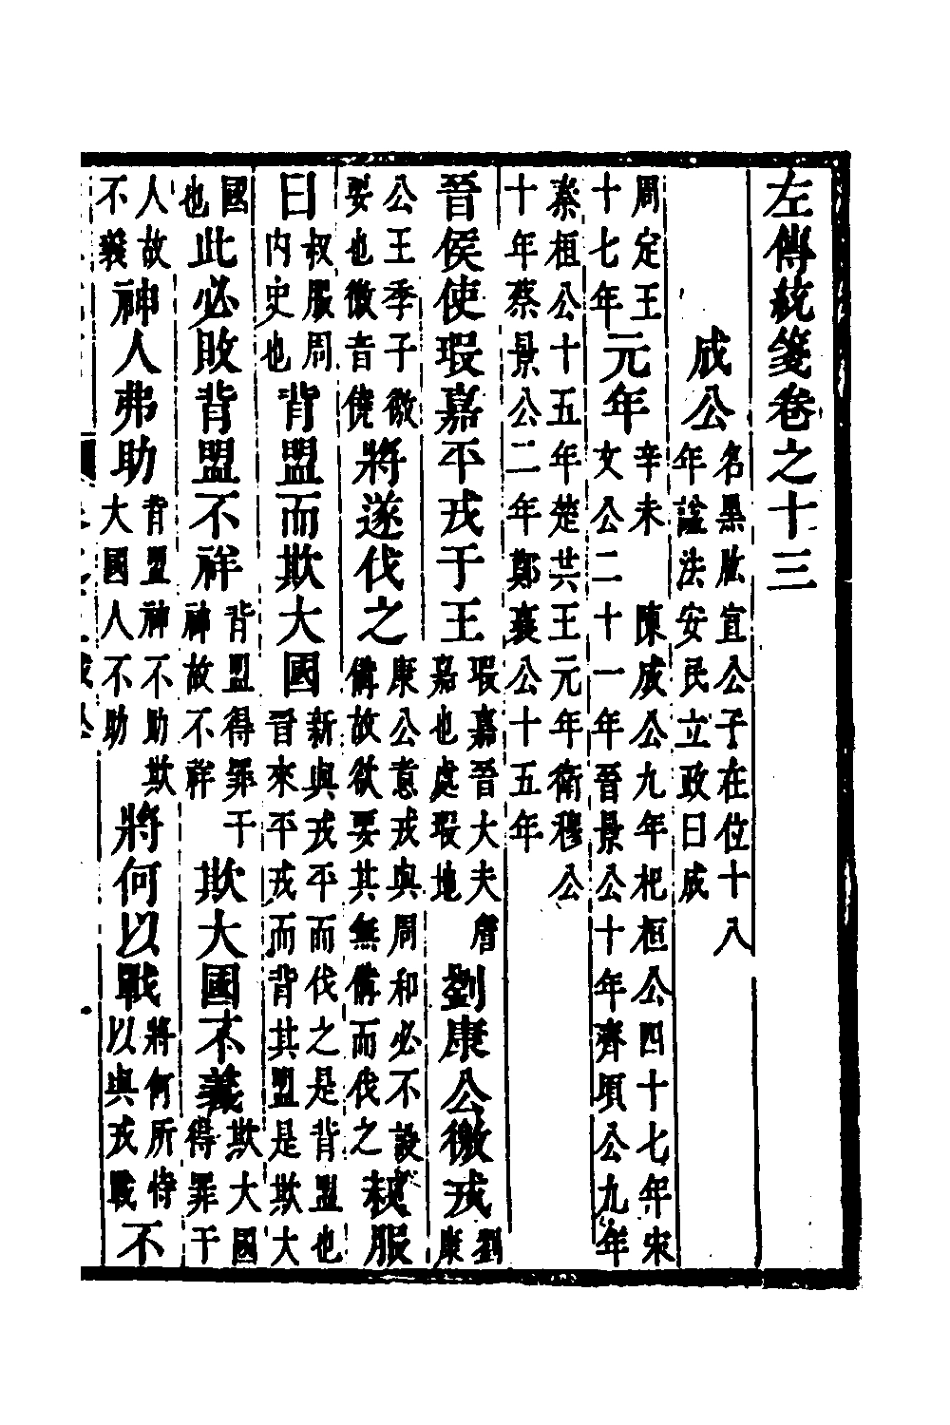 左傳統箋卷之十三
成公名黑肱宣公子在位十八年諡法安民立政曰成
周定王十七年元年辛未 陳成公九年杞桓公四十七年宋文公二十一年晉景公十年齊頃公九年
秦桓公十五年楚共王元年衛穆公十年蔡景公二年鄭襄公十五年
晉侯使瑕嘉平戎于王瑕嘉晉大夫詹嘉也處瑕地劉康公徼戎劉康
公王季子徼要也徼音僥將遂伐之康公意戎與周和必不設備故欲要其無備而伐之叔服
曰叔服周內史也背盟而欺大國新與戎平而伐之是背盟也晉來平戎而背其盟是欺大
國也此必敗背盟不祥背盟得罪于神故不祥欺大國不義欺大國得罪于
人故不義神人弗助背盟神不助欺大國人不助將何以戰將何所恃以與戎戰不